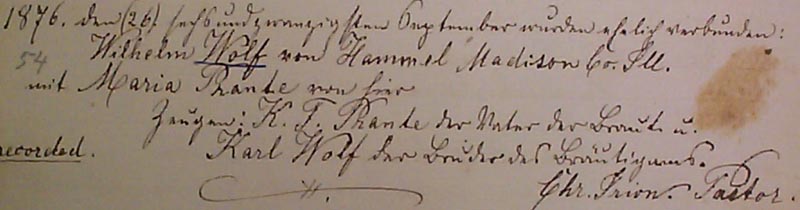 1876. den (26) sechsundzwanzigsten September wurden ehelich verbunden:
Wilhelm Wolf von Hammel Madison Co. Ill.
54
mit Maria Thante von hier
Zeugen: K. F. Thante der Vater der Braut u.
recorded. Karl Wolf der Bruder des Bräutigams.
Chr. Irion. Pastor.